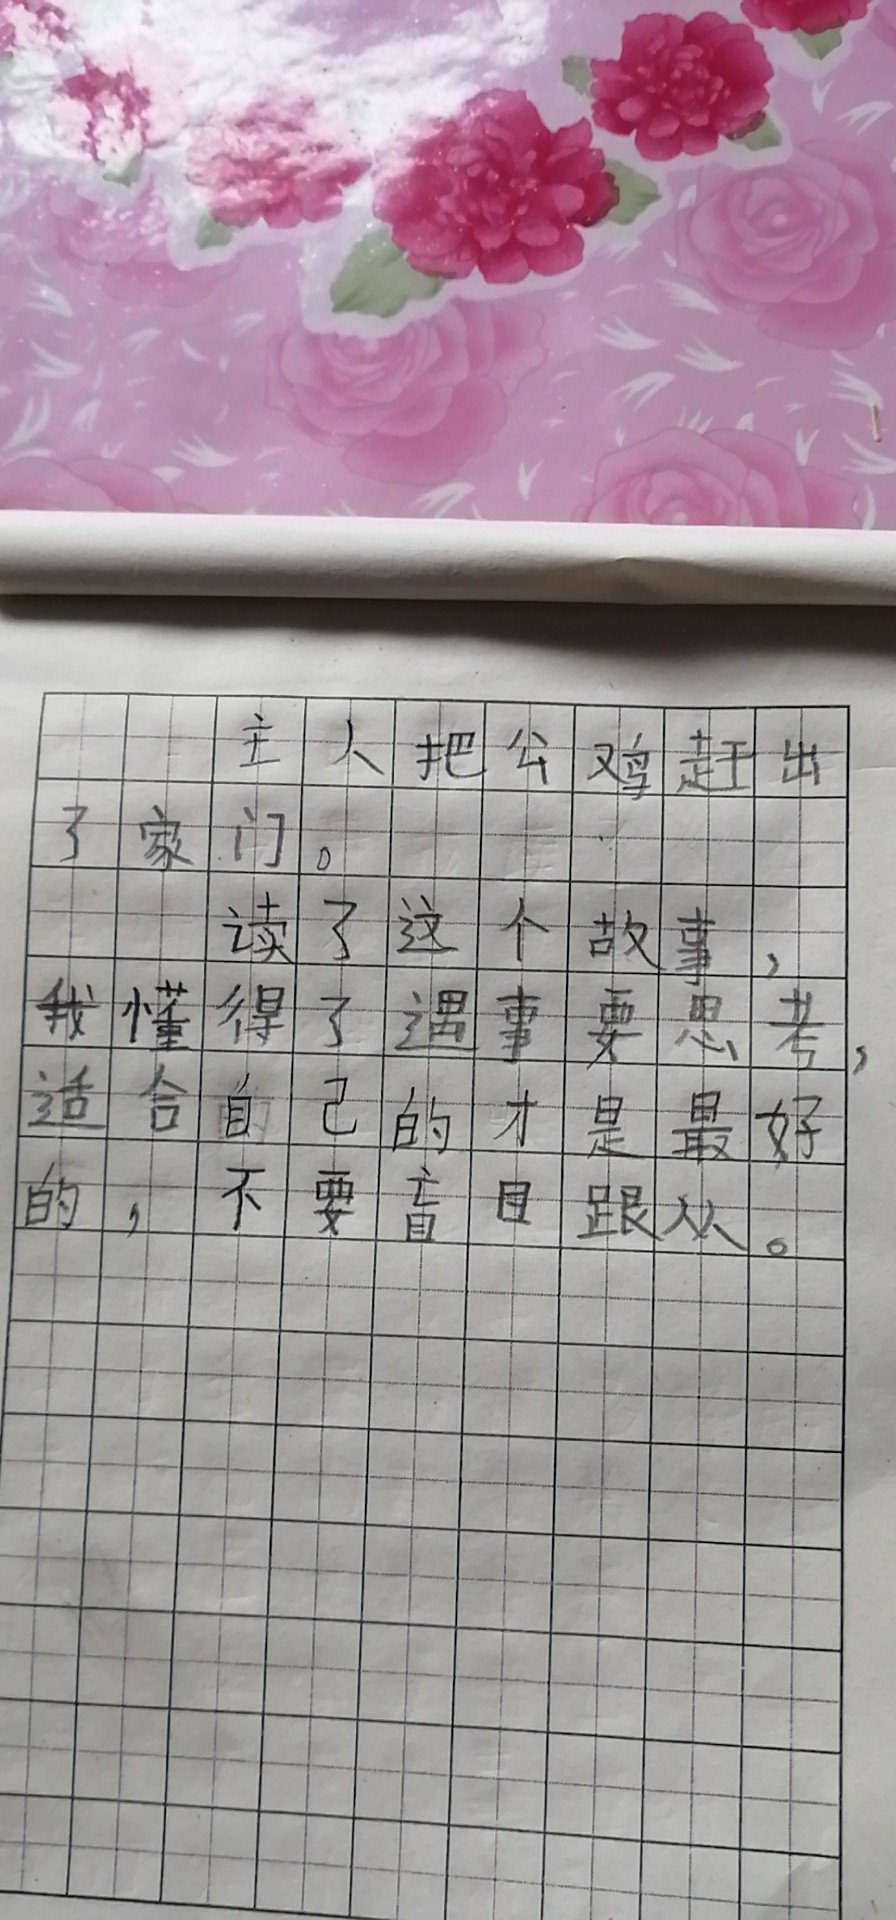 主人把公鸡赶出
了家门。
读了这个故事，
我懂得了遇事要思考，
适合自己的才是最好
的，不要盲目跟从。